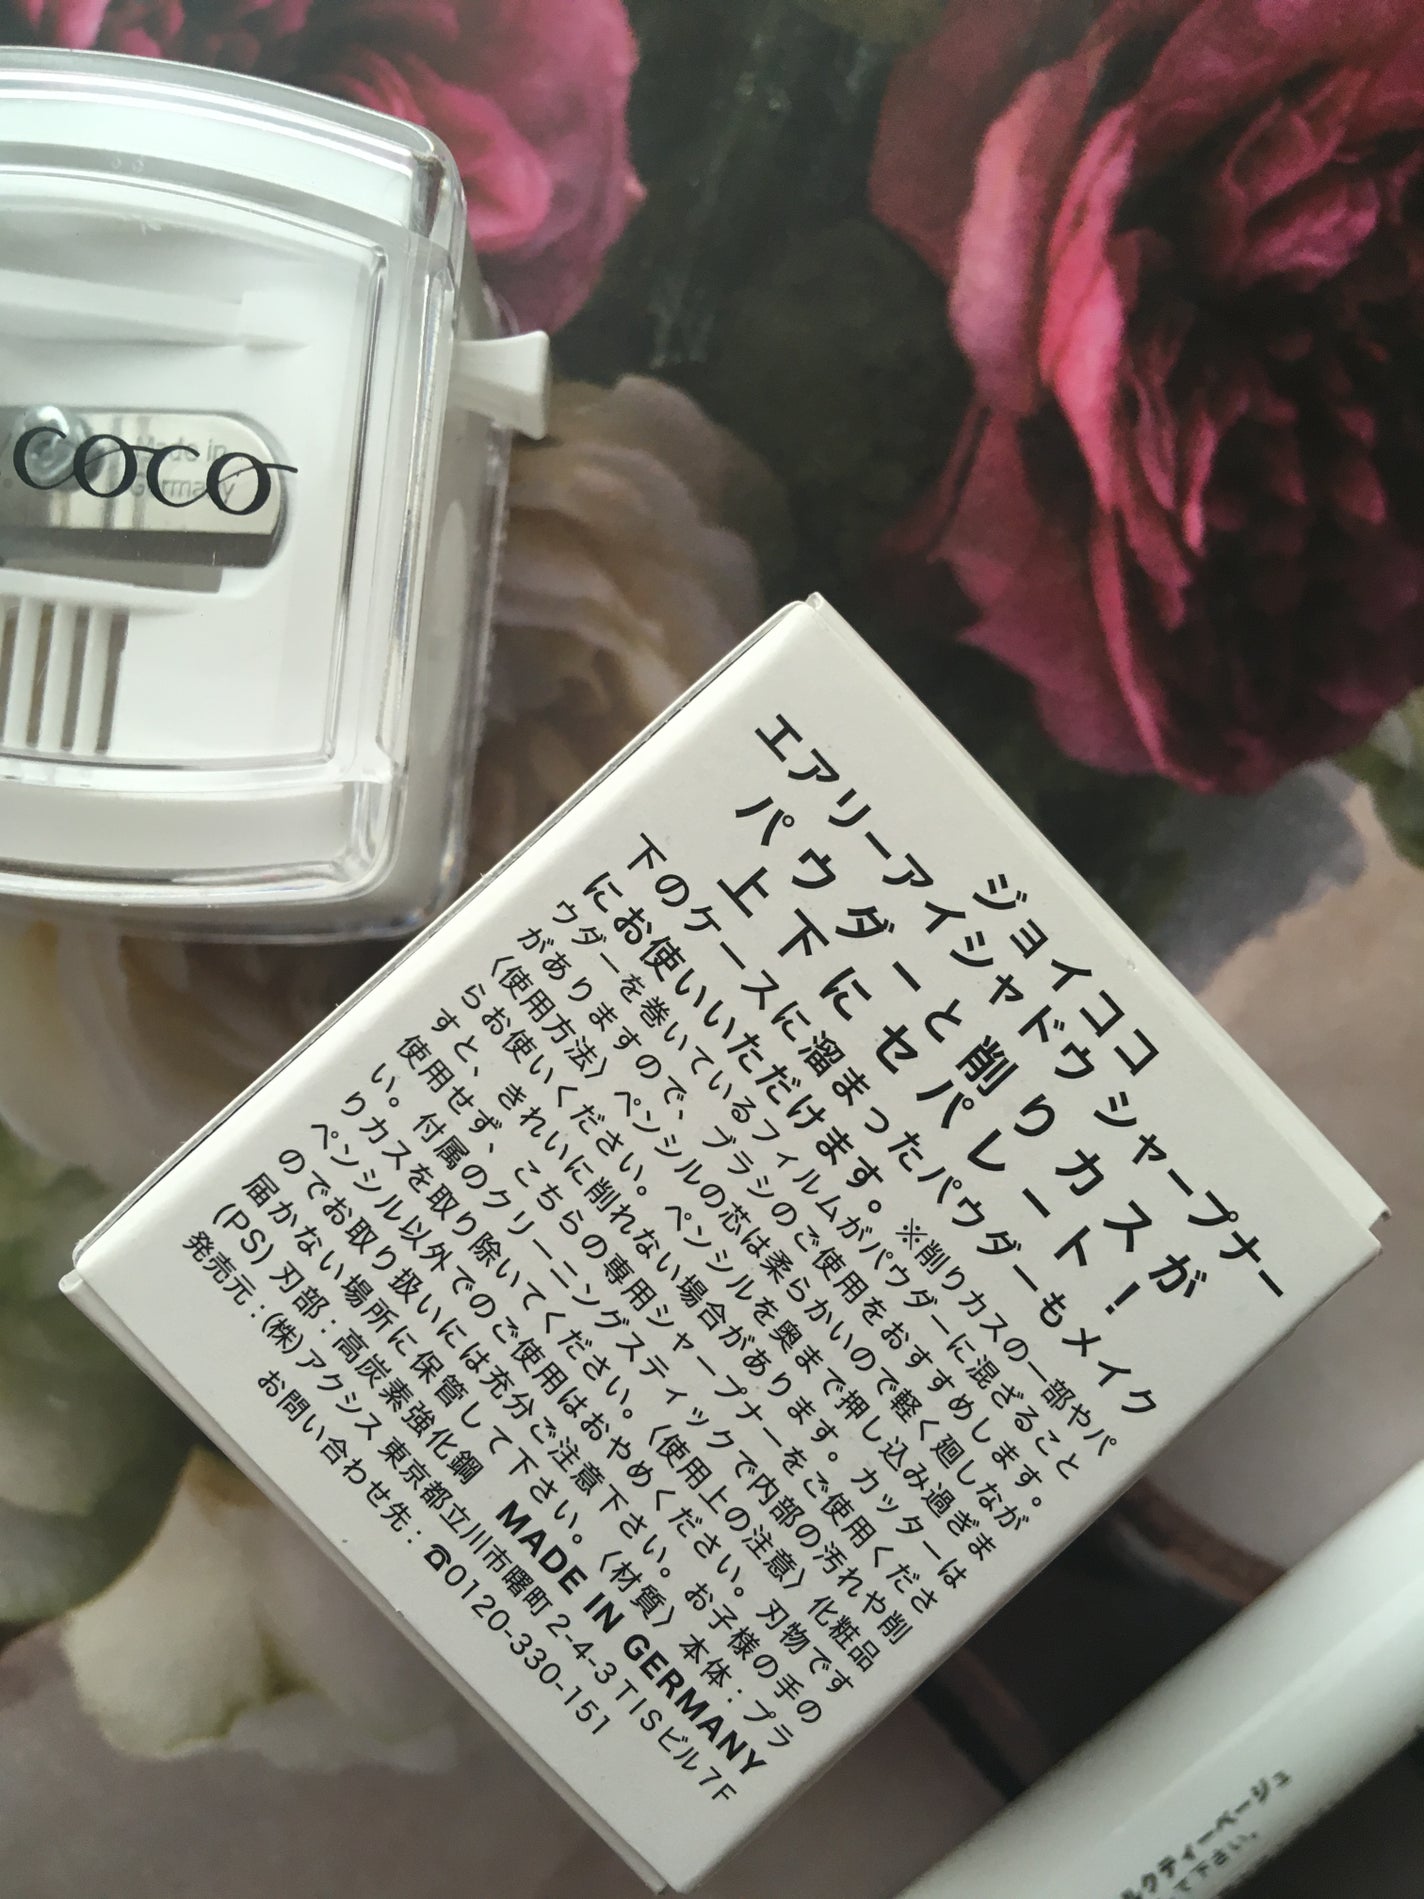 coco
Made in
Germany
ジョイココ
エアリーアイシャドウ シャープナー
パウダーと削りカスが
上下にセパレート！
下のケースに溜まったパウダーもメイク
にお使いいただけます。※削りカスの一部やパ
ウダーを巻いているフィルムがパウダーに混ざること
がありますので、ブラシのご使用をおすすめします。
〈使用方法〉ペンシルの芯は柔らかいので軽く廻しなが
らお使いください。ペンシルを奥まで押し込み過ぎま
すと、きれいに削れない場合があります。カッターは
使用せず、こちらの専用シャープナーをご使用くださ
い。付属のクリーニングスティックで内部の汚れや削
りカスを取り除いてください。〈使用上の注意〉化粧品
ペンシル以外でのご使用はおやめください。刃物です
のでお取り扱いには充分ご注意下さい。お子様の手の
届かない場所に保管して下さい。〈材質〉本体：プラ
(PS) 刃部：高炭素強化鋼 MADE IN GERMANY
発売元：(株)アクシス 東京都立川市曙町2-4-3 TISビル7F
お問い合わせ先：☎0120-330-151
ルクティーベージュ
て下さい。